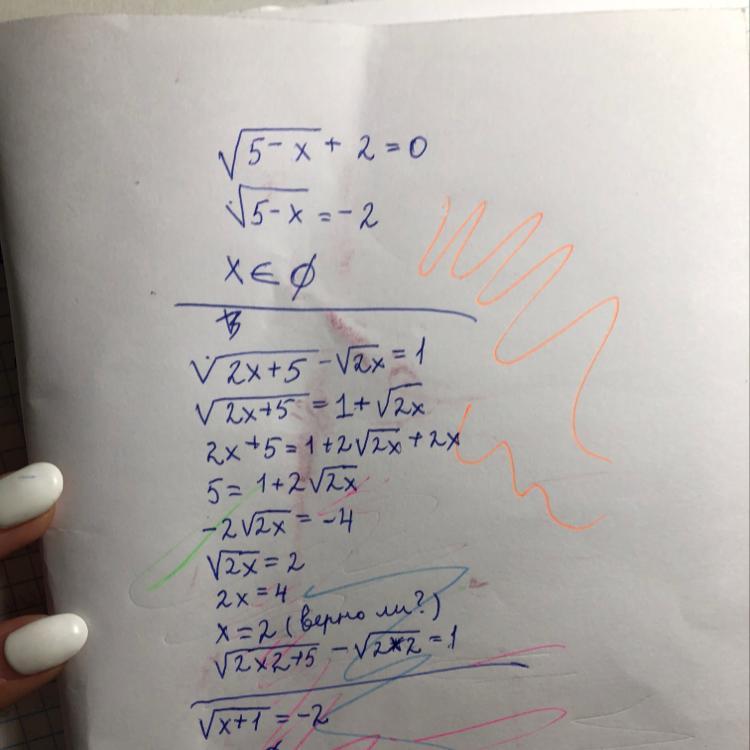 √5-x + 2 = 0
√5-x = -2
x ∈ ∅
√2x+5 - √2x = 1
√2x+5 = 1+√2x
2x+5 = 1+2√2x+2x
5 = 1+2√2x
-2√2x = -4
√2x = 2
2x = 4
x = 2 (верно ли?)
√2×2+5 - √2×2 = 1
√x+1 = -2